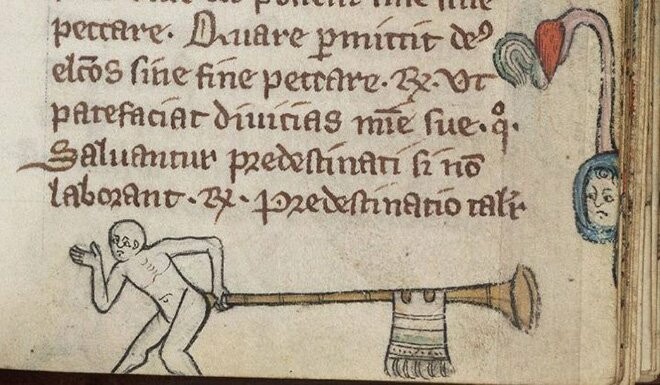 peccare. Quare permittit deꝰ
elcōs sine fine peccare. ℞. Vt
patefaciat diuicias mīe sue. q̊.
Saluantur predestinati si nō
laborant. ℞. Predestinatio talr̄